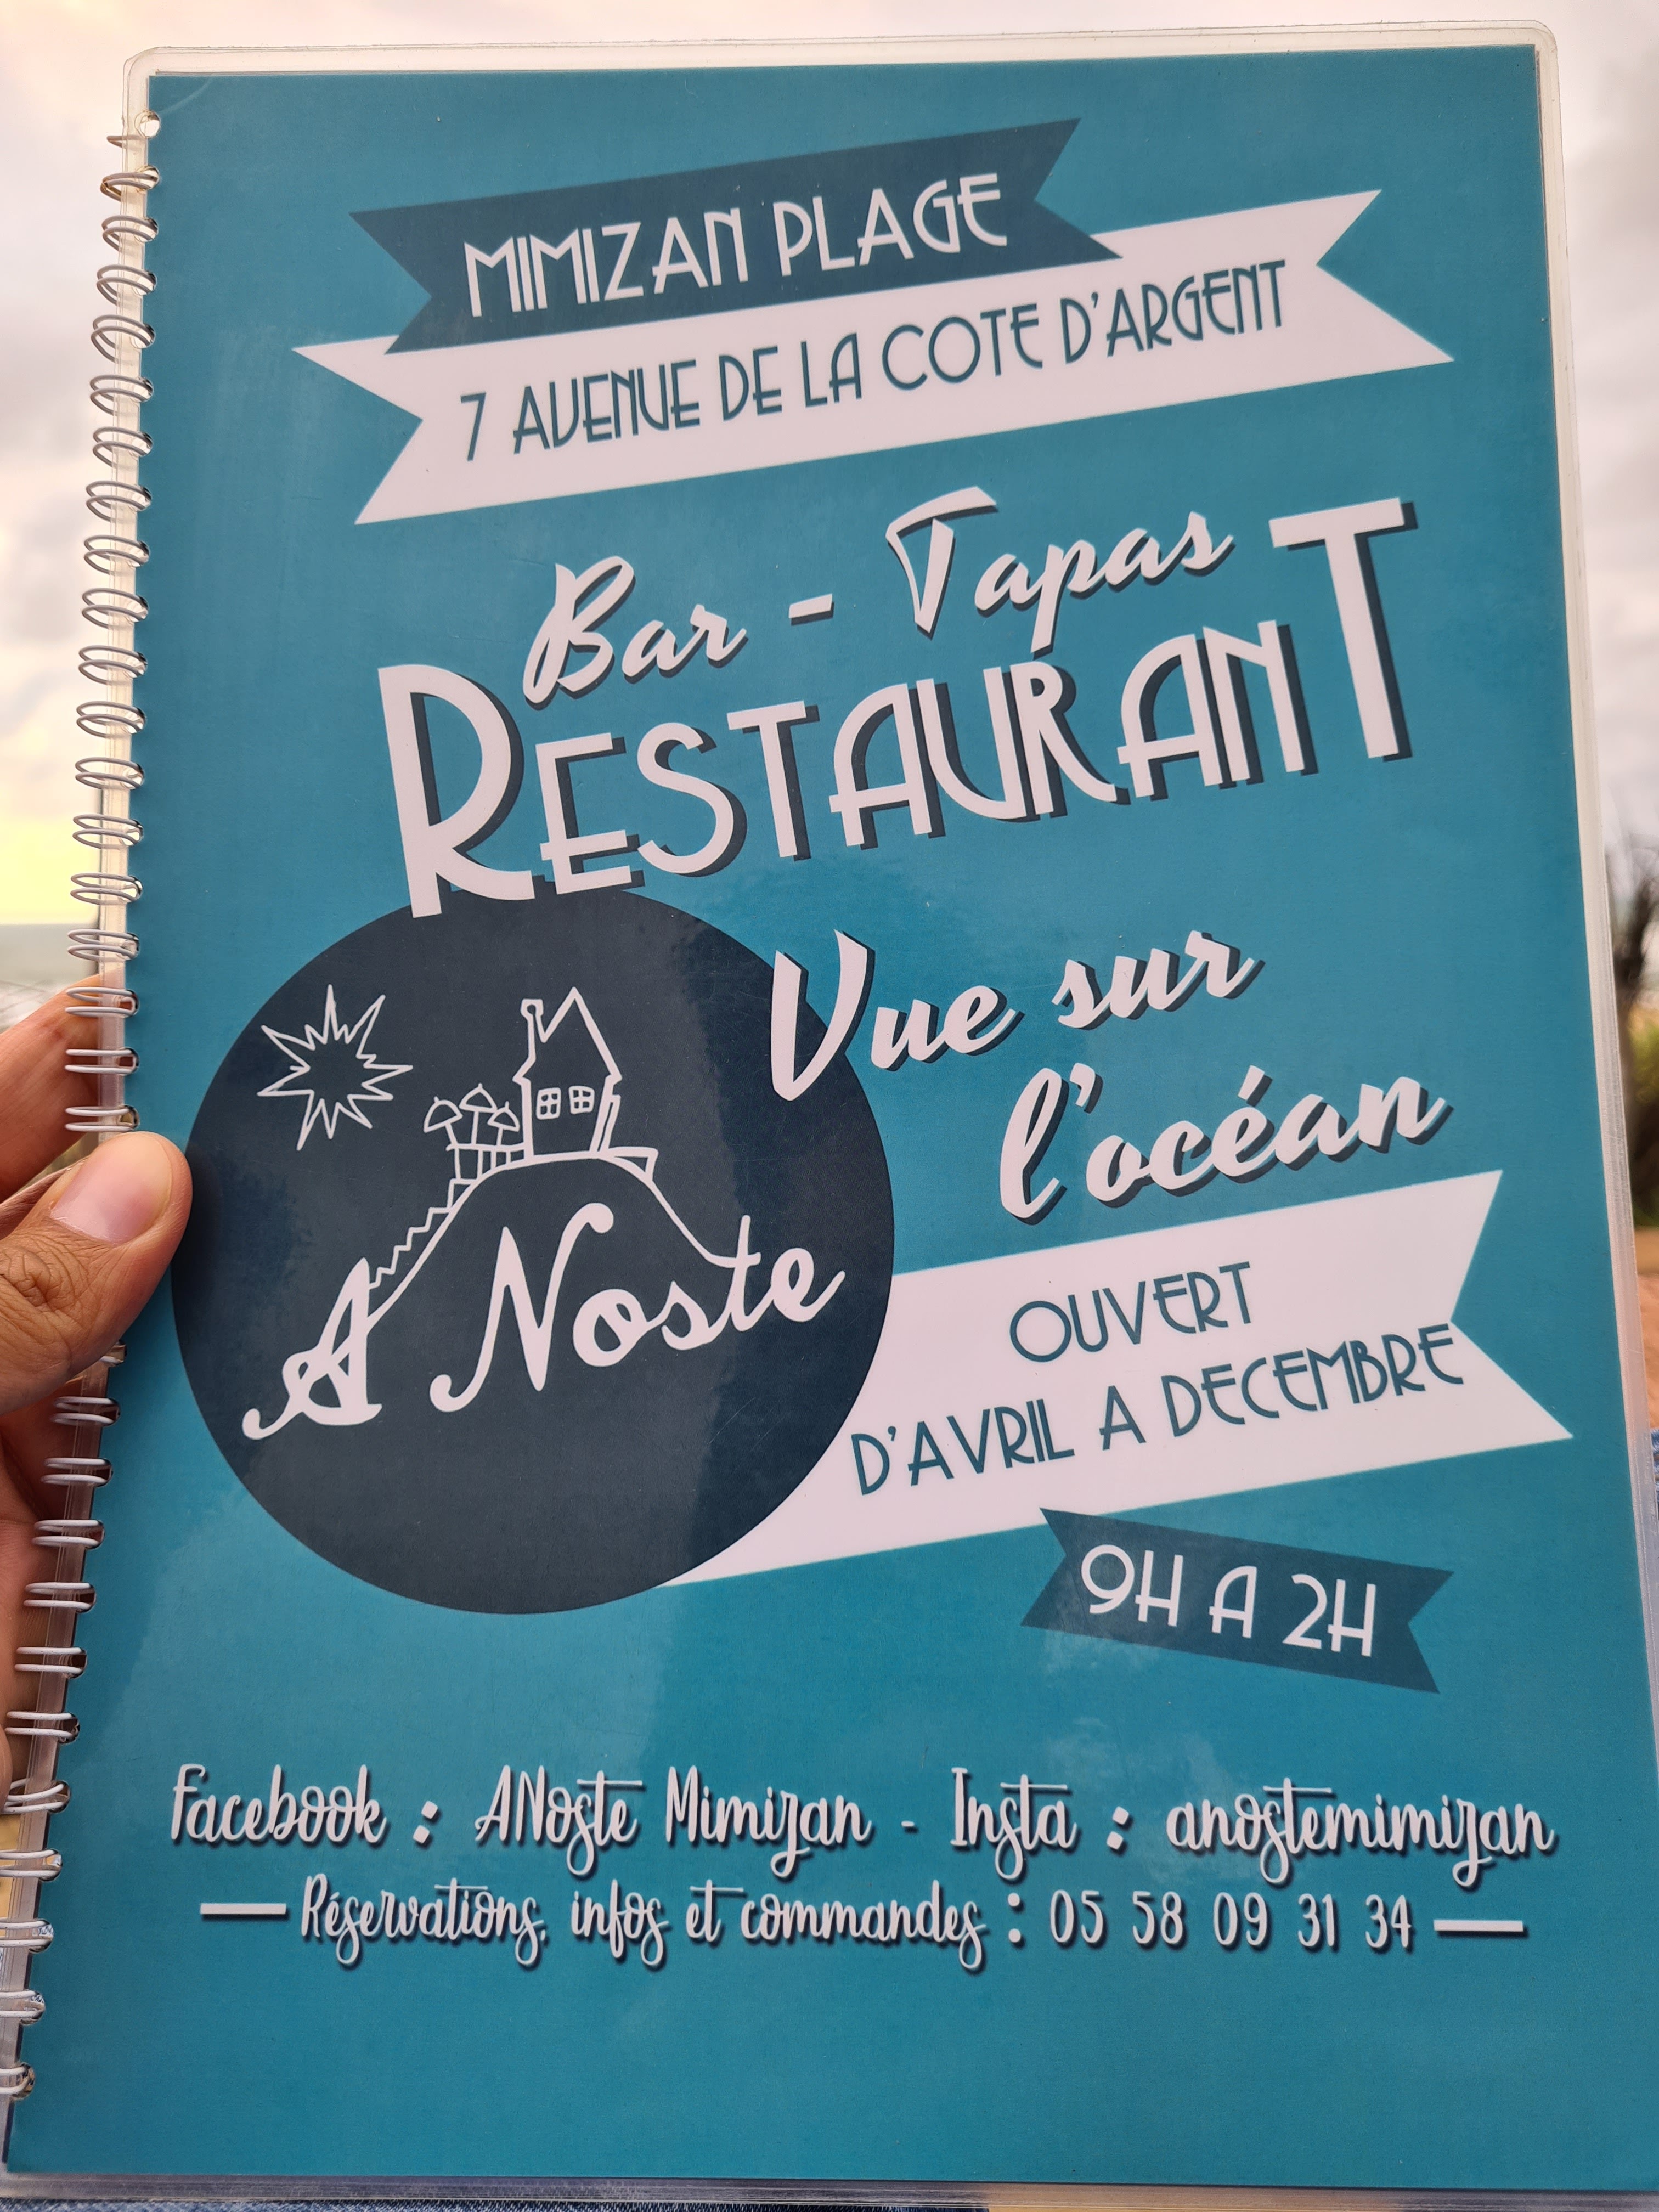 MIMIZAN PLAGE
7 AVENUE DE LA COTE D'ARGENT
Bar - Tapas
RESTAURANT
Vue sur
l'océan
A Noste
OUVERT
D'AVRIL A DECEMBRE
9H A 2H
Facebook : ANoste Mimizan - Insta : anostemimizan
Réservations, infos et commandes : 05 58 09 31 34